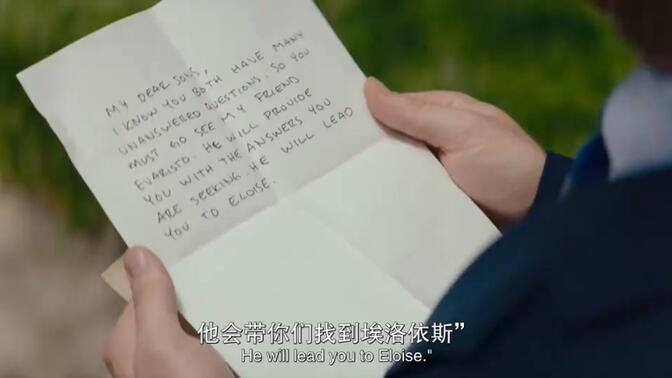 MY DEAR SONS,
I KNOW YOU BOTH HAVE MANY
UNANSWERED QUESTIONS. SO YOU
MUST GO SEE MY FRIEND
EVARISTO. HE WILL PROVIDE
YOU WITH THE ANSWERS YOU
ARE SEEKING. HE WILL LEAD
YOU TO ELOISE.
他会带你们找到埃洛依斯”
He will lead you to Eloise."